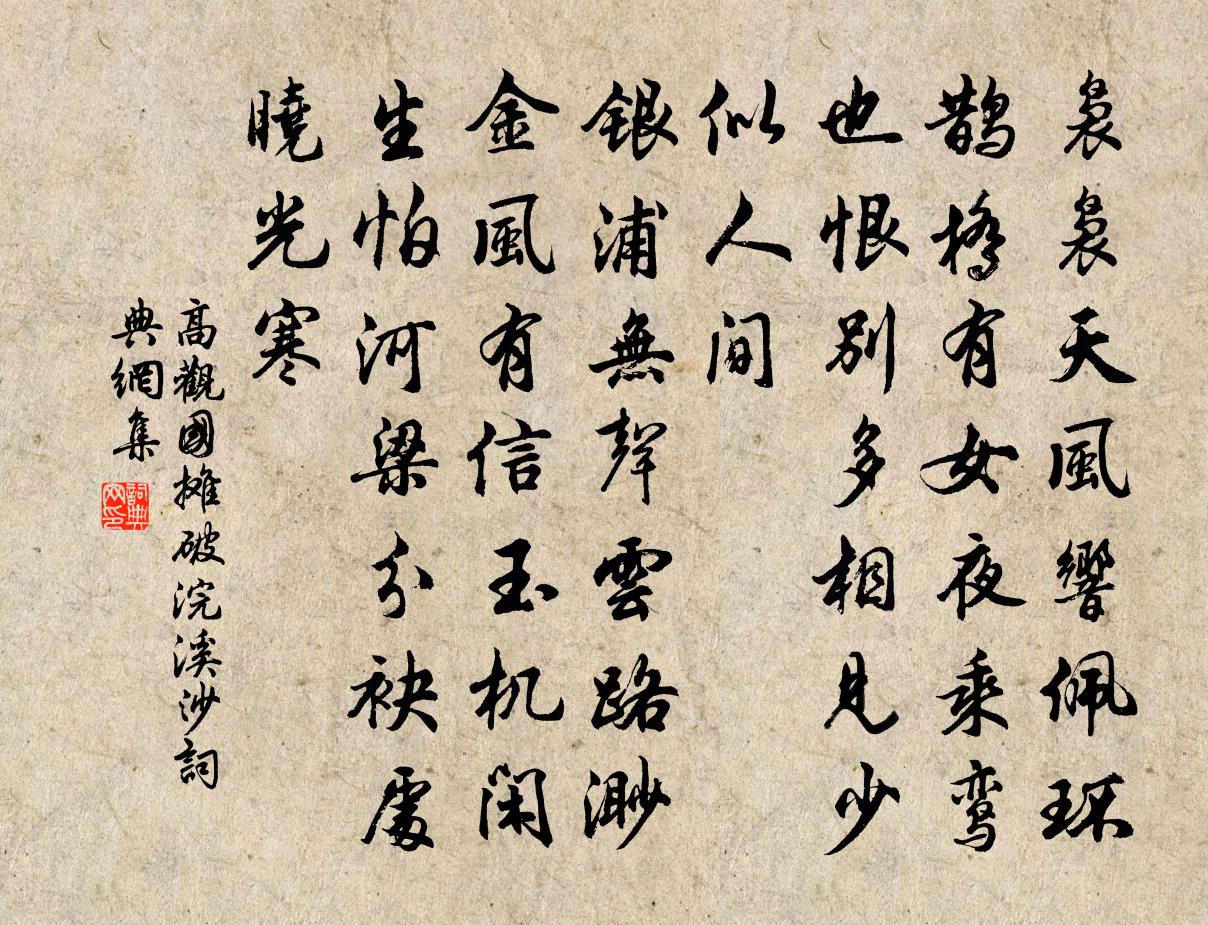 袅袅天風響佩環
鵲橋有女夜乘鸾
也恨別多相見少
似人間
銀浦無聲雲路渺
金風有信玉机闲
生怕河梁分袂處
曉光寒
高觀國攤破浣溪沙詞
典網集
詞典
网印